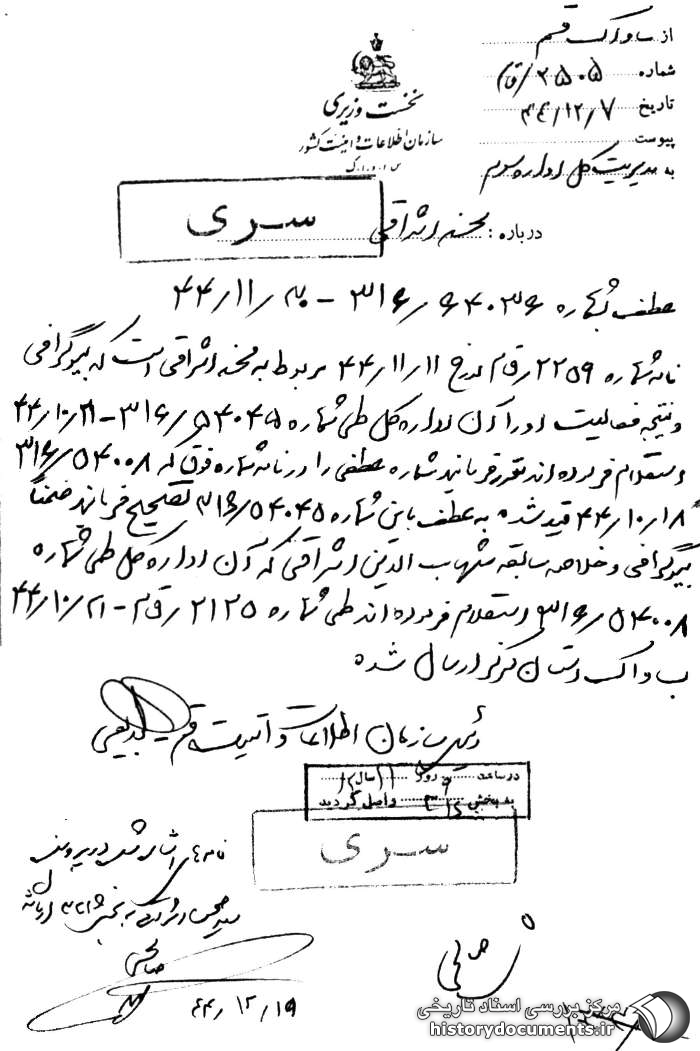 از ساواک قم
شماره ۲۵۰۵/ق‌م
تاریخ ۴۴/۱۲/۷
پیوست
به مدیریت کل اداره سوم
نخست وزیری
سازمان اطلاعات و امنیت کشور
س.ا.و.ا.ک
سری
درباره : اشراقی
عطف بشماره ۳۱۶/۶۴۰۳۶ – ۴۴/۱۱/۳۰
نامه شماره ۲۲۵۹/ق‌م مورخ ۴۴/۱۱/۱۱ مربوط به اشراقی است که بیوگرافی
و نتیجه فعالیت او را آن اداره کل طی شماره ۳۱۶/۵۴۰۴۵–۴۴/۱۰/۲۱
استعلام فرموده‌اند مقرر فرمایند شماره عطفی را در نامه شماره فوق که ۳۱۶/۵۴۰۰۸
۴۴/۱۰/۱۸ قید شده به عطف باین شماره ۳۱۶/۵۴۰۴۵ تصحیح فرمایند ضمناً
بیوگرافی و خلاصه سابقه شهاب الدین اشراقی که آن اداره کل طی شماره
۳۱۶/۵۴۰۰۸ استعلام فرموده‌اند طی شماره ۲۱۲۵/ق‌م – ۴۴/۱۰/۲۱
ب ساواک استان مرکز ارسال شده
رئیس سازمان اطلاعات و امنیت قم بدیعی
در ساعت روز
به بخش ۳۱۶ واصل گردید
سری
نامه
به بخش ۳۱۶
صالحی
۴۴/۱۲/۱۹
مرکز بررسی اسناد تاریخی
historydocuments.ir